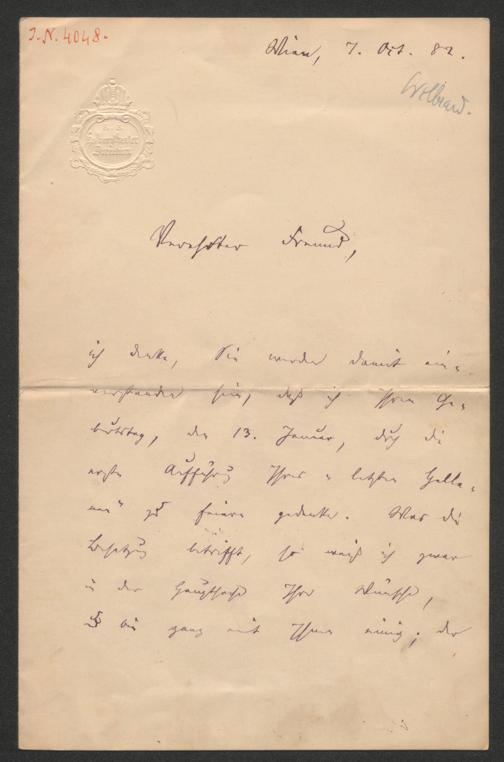 J.N. 4048.
Wien, 7. Oct. 82.
Wilbrand.
Verehrter Freund,
ich denke, Sie werden damit ein-
verstanden sein, daß ich Ihren Ge-
burtstag, den 13. Januar, durch die
erste Aufführung Ihres „letzten
zu feiern gedenke. Was die
Besetzung betrifft, so weiß ich zwar
in der Hauptsache Ihre Wünsche,
bin ganz mit Ihnen einig; der